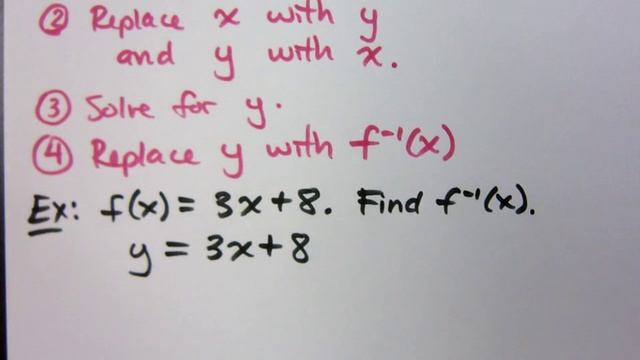 ② Replace x with y
and y with x.
③ Solve for y.
④ Replace y with f⁻¹(x)
Ex: f(x) = 3x+8. Find f⁻¹(x).
y = 3x+8